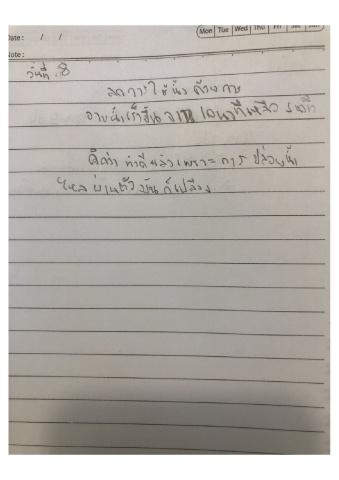 Date: / /
Mon Tue Wed Thu Fri Sat Sun
Note:
วันที่ 8
ลดการใช้น้ำ ด้วยการ
อาบน้ำเร็วขึ้น จาก 10นาทีเหลือ 5นาที
คิดว่า ทำดีแล้วเพราะการปล่อยน้ำ
ไหลผ่านตัวมันก็เปลือง